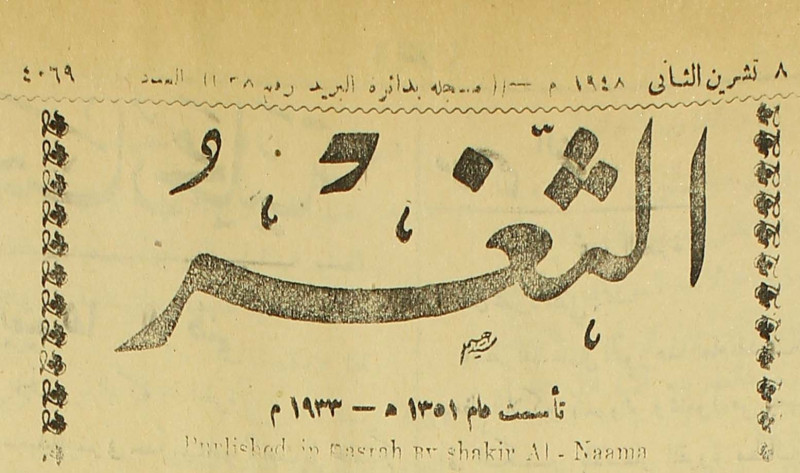 ٨ تشرين الثاني ١٩٤٨ م — (( مسجله بدائرة البريد رقم ١٣٨ )) العدد ٤٠٦٩
الثغر
تأسست عام ١٣٥١ ه — ١٩٣٣ م
Published in Basrah BY shakir Al - Naama